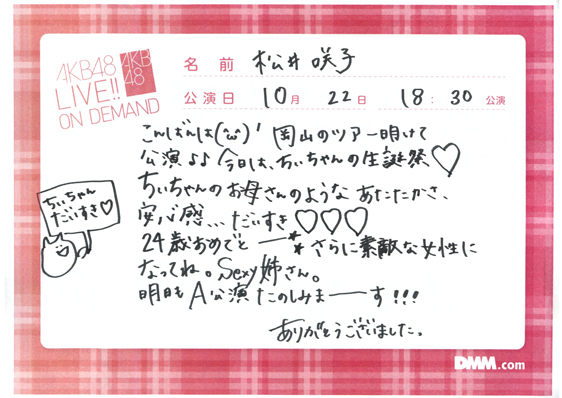 AKB48
LIVE!!
ON DEMAND
AKB
48
名前 松井咲子
公演日 10月 22日 18:30公演
こんばんは(^ω^)' 岡山のツアー明けて
公演♪♪ 今日は、ちぃちゃんの生誕祭♡
ちぃちゃんのお母さんのような あたたかさ、
安心感、、、だいすき♡♡♡
24歳おめでとーー** さらに素敵な女性に
なってね。Sexy姉さん。
明日もA公演たのしみまーーす!!!
ありがとうございました。
ちぃちゃん
だいすき♡
DMM.com